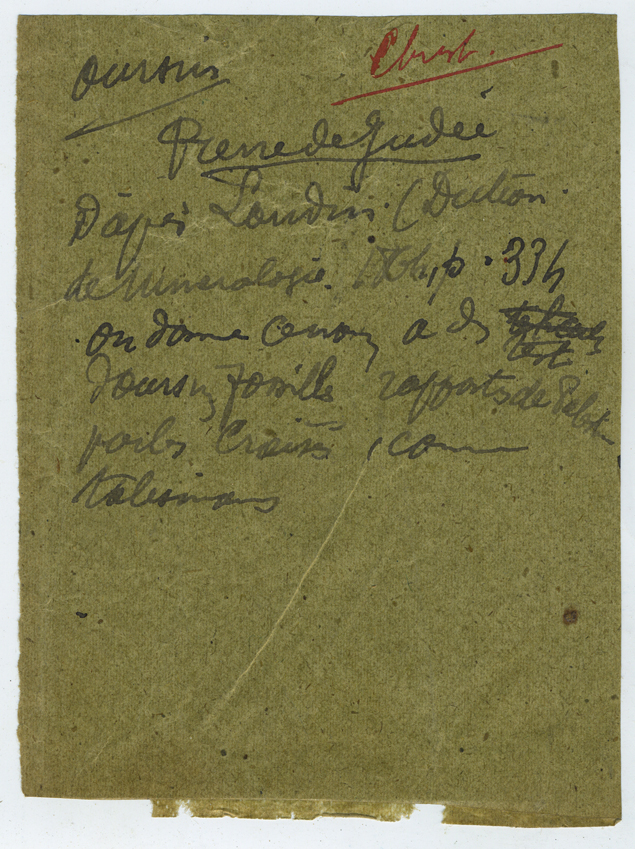 oursin
Christ.
Pierre de Judée
D'après Landrin (Diction.
de minéralogie. p. 334
on donne ce nom à des
test
d'oursin fossille rapportés de Palestine
par les Croisés, comme
talismans